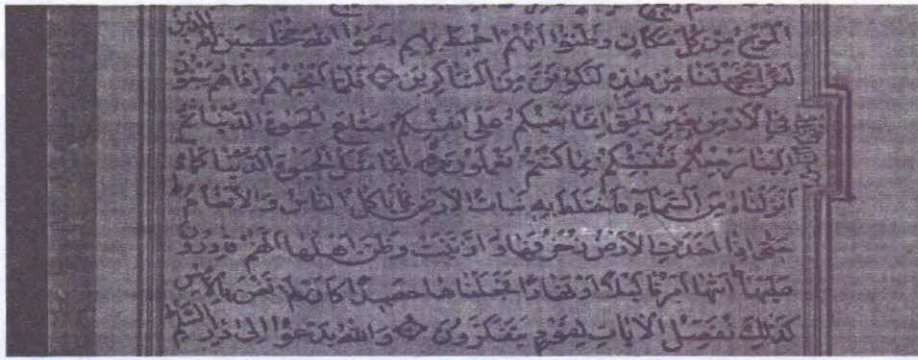 الموج من كل مكان وظنوا انهم احيط بهم دعوا الله مخلصين له الدين
لئن انجيتنا من هذه لنكونن من الشاكرين فلما انجيهم اذا هم يبغون
في الارض بغير الحق انما بغيكم على انفسكم متاع الحيوة الدنيا ثم
الينا مرجعكم فننبئكم بما كنتم تعملون انما مثل الحيوة الدنيا كماء
انزلناه من السماء فاختلط به نبات الارض مما ياكل الناس والانعام
حتى اذا اخذت الارض زخرفها وازينت وظن اهلها انهم قادرون
عليها اتيها امرنا ليلا او نهارا فجعلناها حصيدا كان لم تغن بالامس
كذلك نفصل الايات لقوم يتفكرون والله يدعوا الى دار السلام